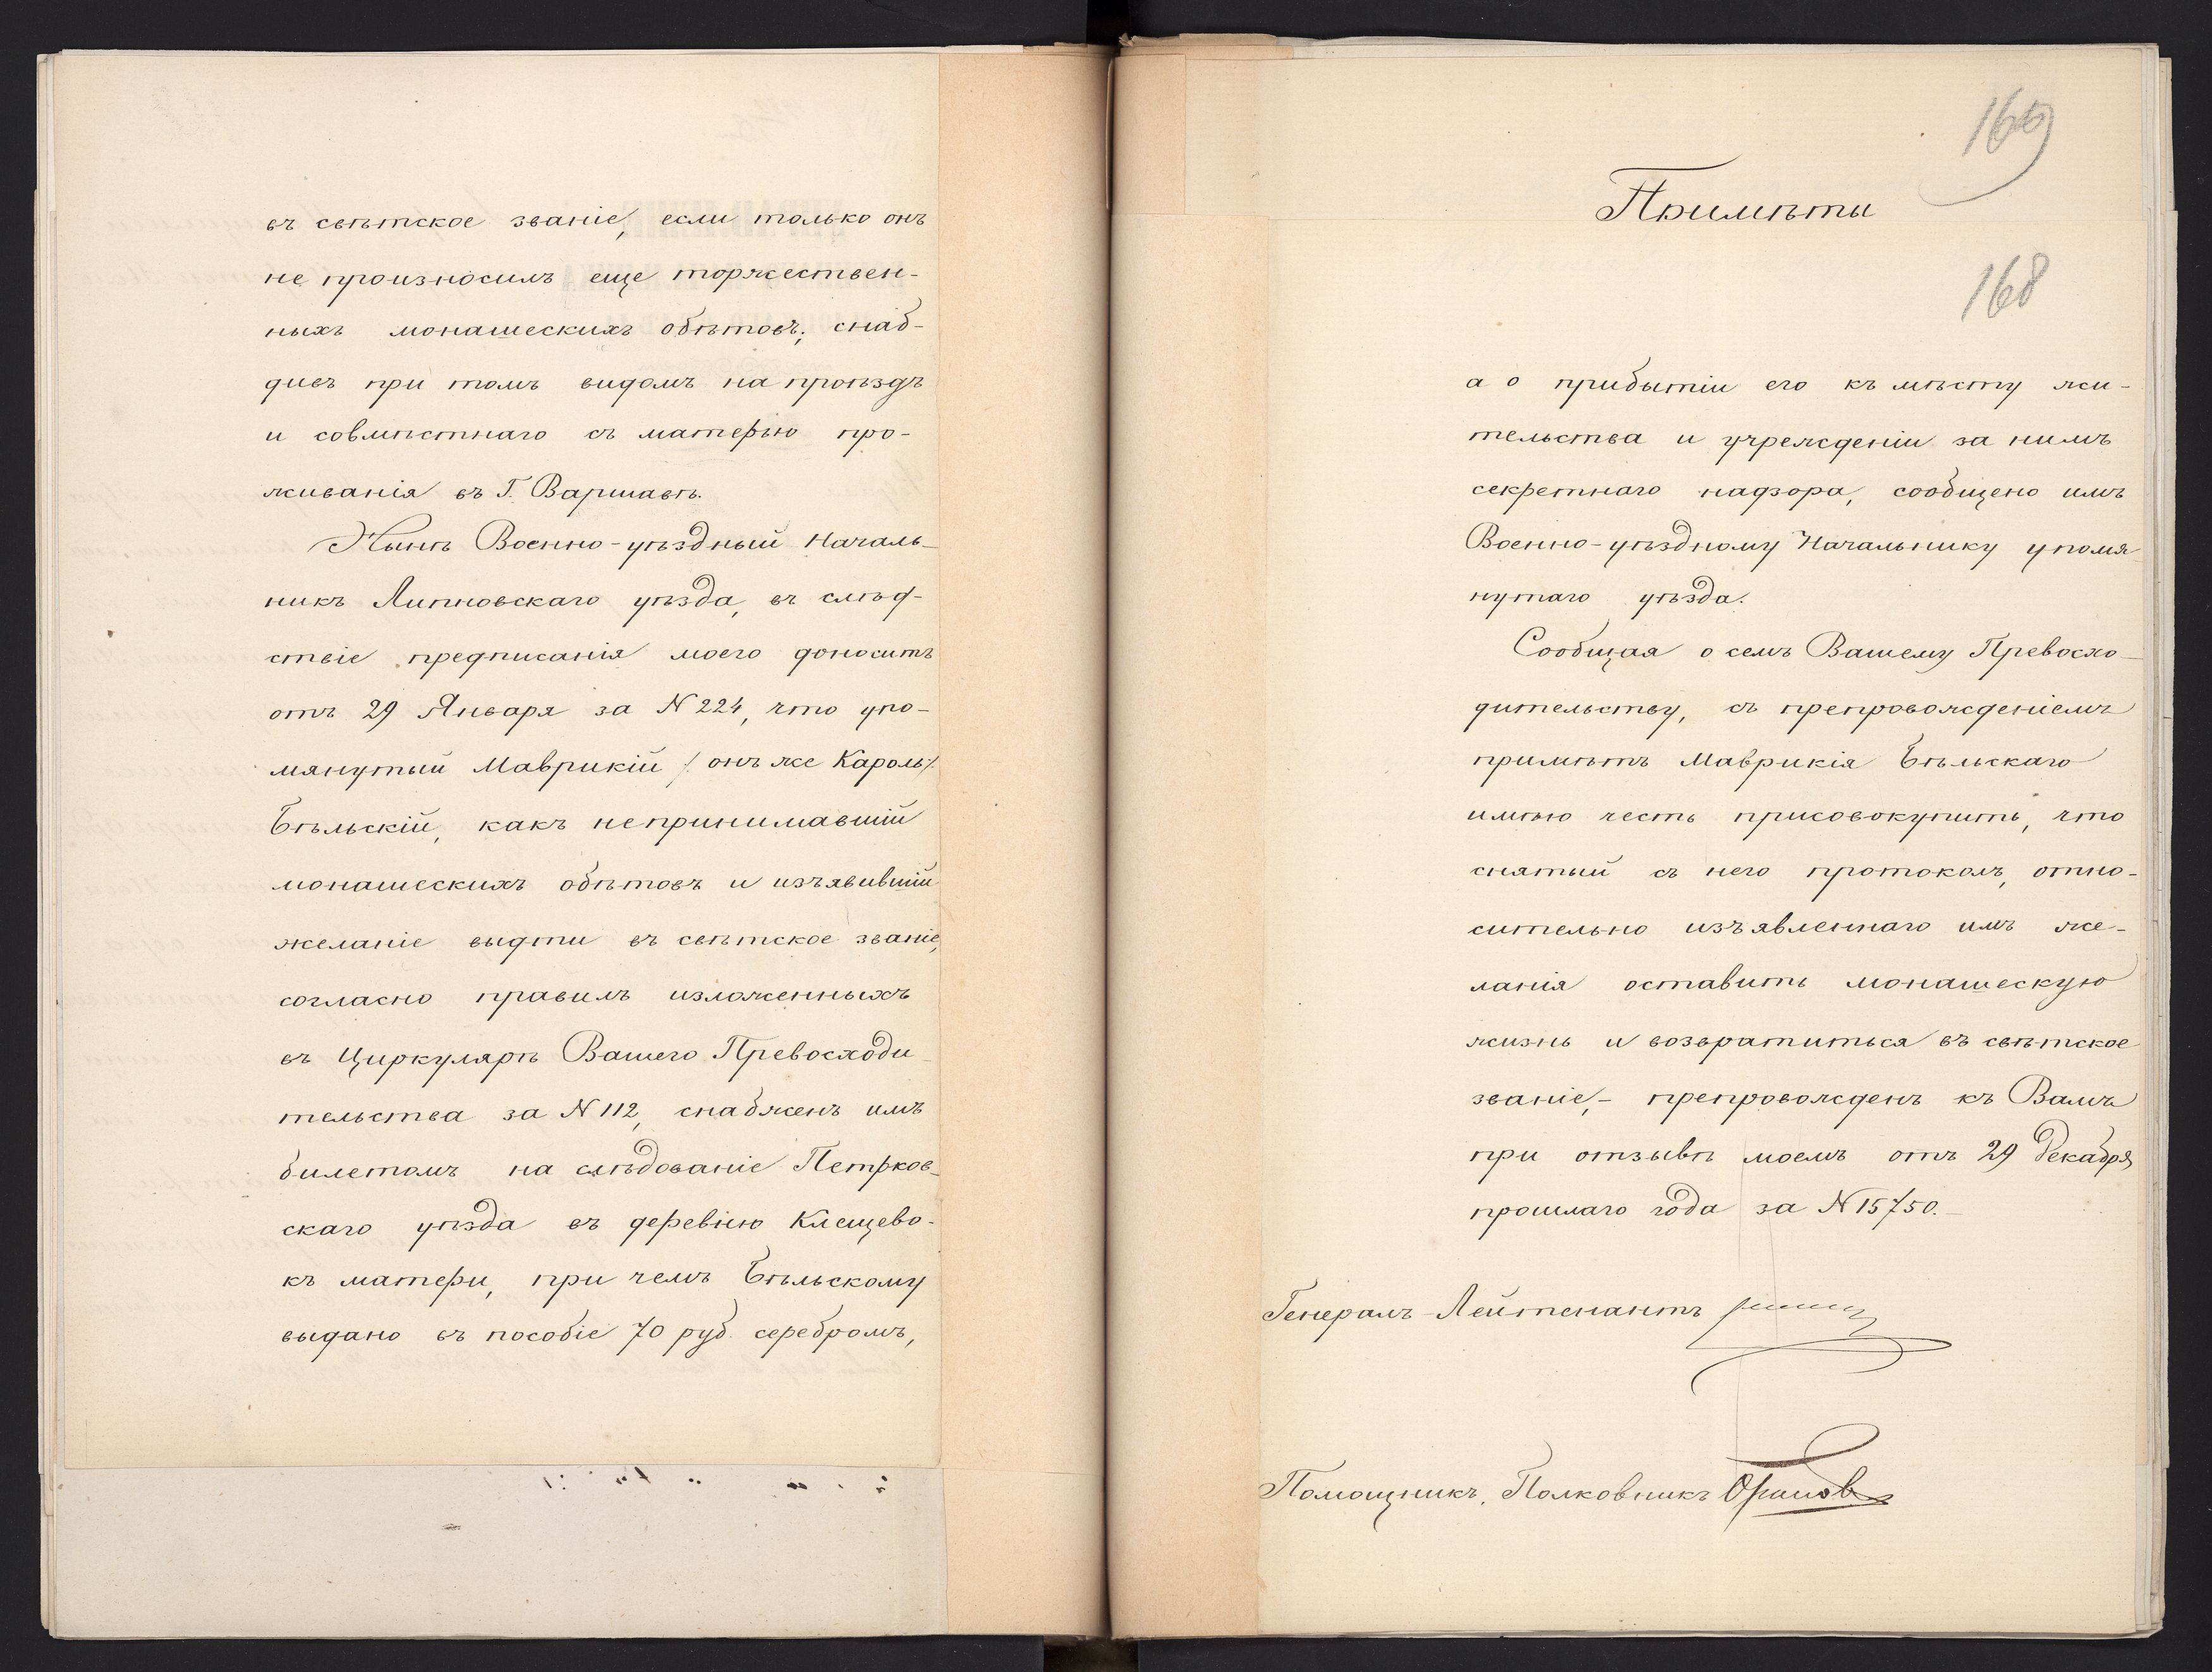 въ свѣтское званіе, если только онъ
не произносилъ еще торжествен-
ныхъ монашескихъ обѣтовъ; снаб-
дивъ при томъ видомъ на проѣздъ
и совмѣстнаго съ матерью про-
живанія въ Г. Варшавѣ.
Нынѣ Военно-уѣздный Началь-
никъ Липновскаго уѣзда, въ слѣд-
ствіе предписанія моего доноситъ
отъ 29 Января за N 224, что упо-
мянутый Маврикій /: онъ же Кароль :/
Бѣльскій, какъ непринимавшій
монашескихъ обѣтовъ и изъявившій
желаніе выдти въ свѣтское званіе,
согласно правилъ изложенныхъ
въ Циркулярѣ Вашего Превосходи-
тельства за N 112, снабженъ имъ
билетомъ на слѣдованіе Петрков-
скаго уѣзда въ деревню Клещево-
къ матери, при чемъ Бѣльскому
выдано въ пособіе 70 руб. серебромъ,
169
Примѣты
168
а о прибытіи его къ мѣсту жи-
тельства и учрежденіи за нимъ
секретнаго надзора, сообщено имъ
Военно-уѣздному Начальнику упомя-
нутаго уѣзда.
Сообщая о семъ Вашему Превосхо-
дительству, съ препровожденіемъ
примѣтъ Маврикія Бѣльскаго
имѣю честь присовокупить, что
снятый съ него протоколъ, отно-
сительно изъявленнаго имъ же-
ланія оставить монашескую
жизнь и возвратиться въ свѣтское
званіе,- препровожденъ къ Вамъ
при отзывѣ моемъ отъ 29 Декабря
прошлаго года за N 15750.-
Генералъ-Лейтенантъ
Помощникъ, Полковникъ